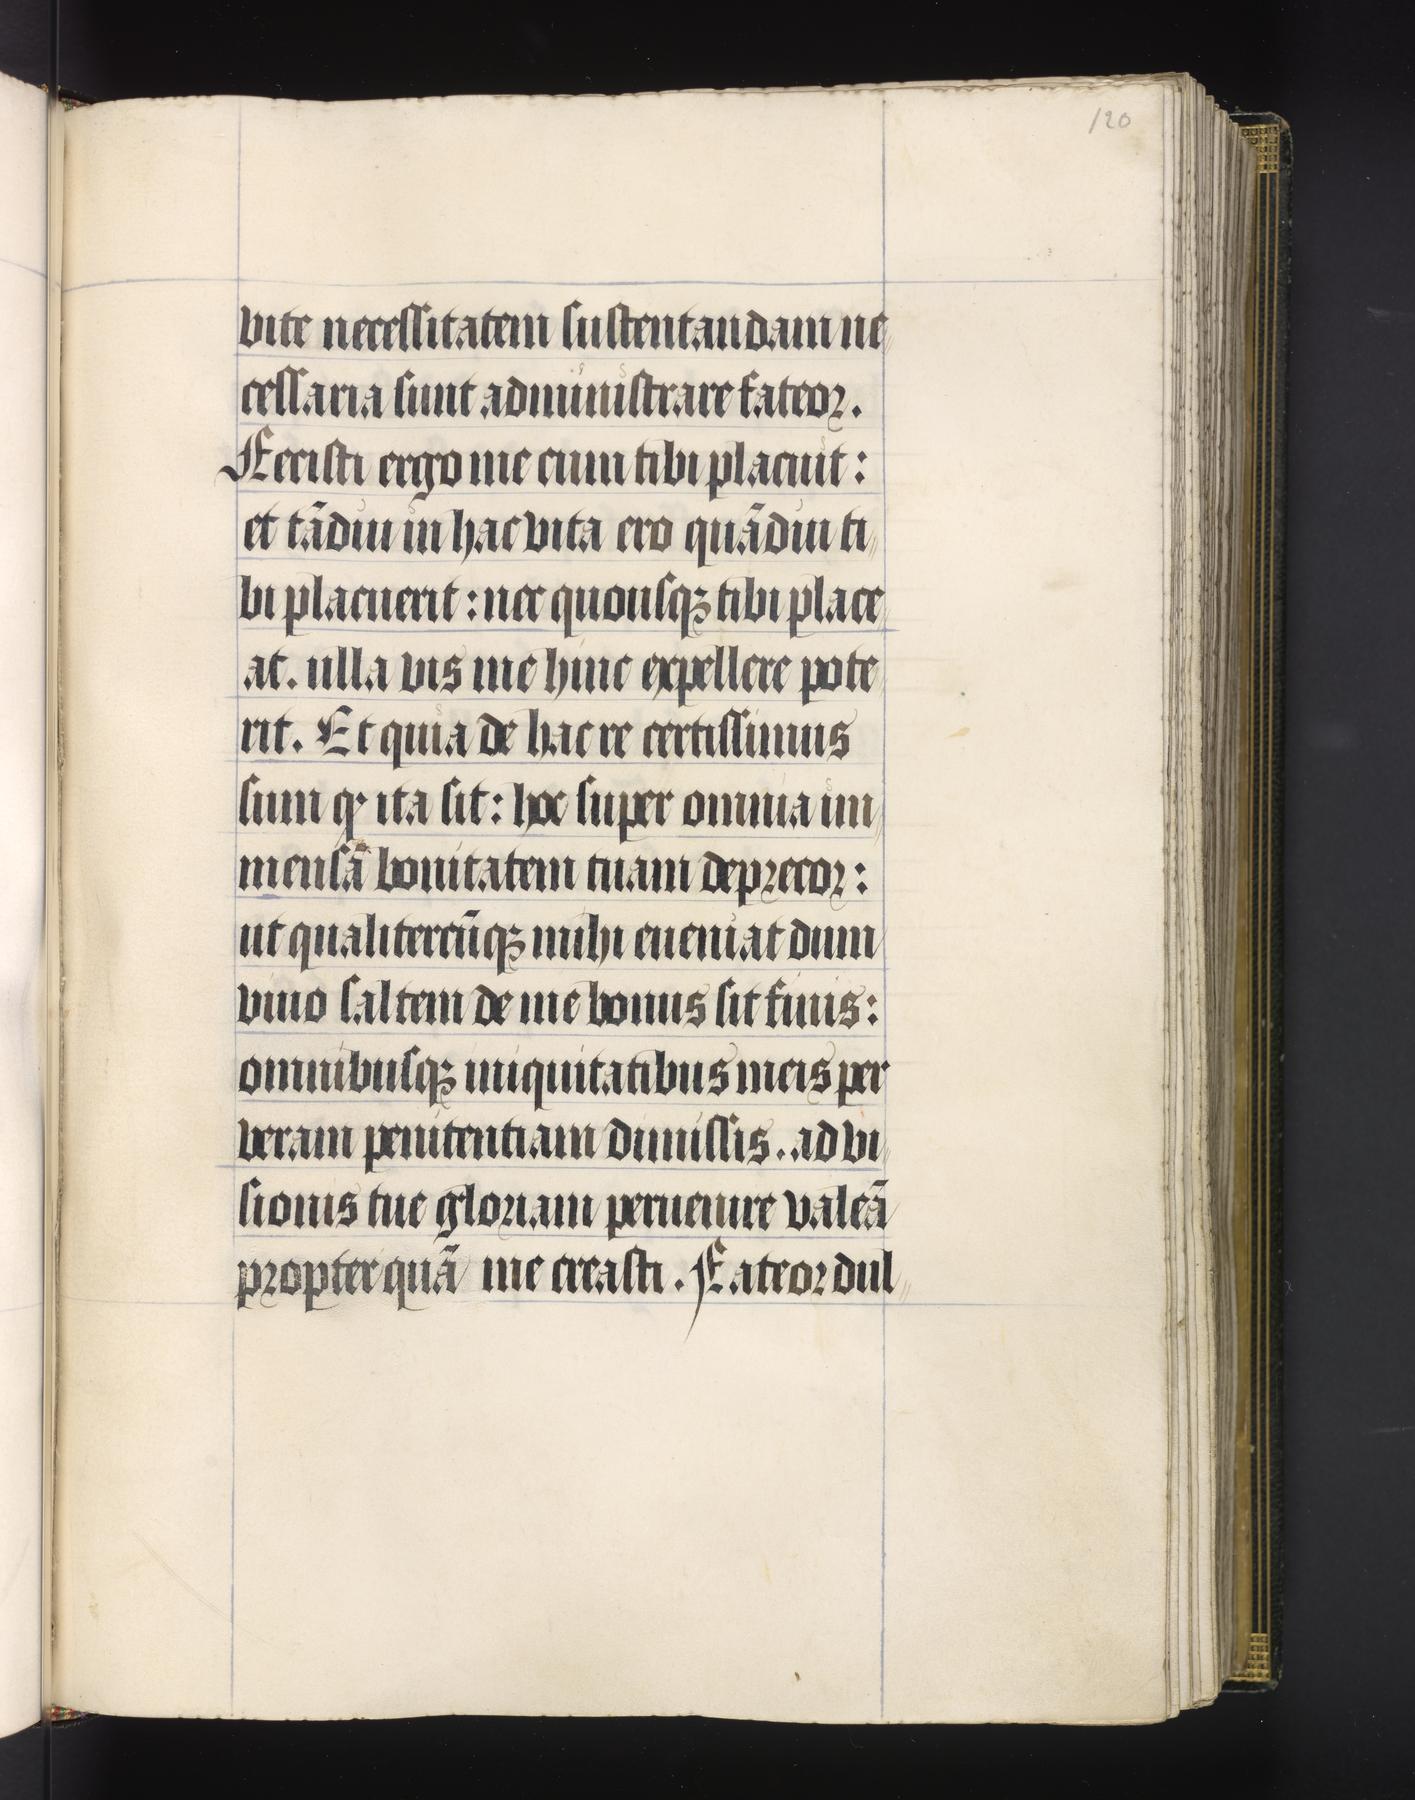 120
vite necessitatem sustentandam ne
cessaria sunt administrare fateor.
Fecisti ergo me cum tibi placuit:
et tādiu in hac vita ero quādiu ti
bi placuerit: nec quousqꝫ tibi place
at. ulla vis me hinc expellere pote
rit. Et quia de hac re certissimus
sum ꝙ ita sit: hoc super omnia im
mensā bonitatem tuam deprecor:
ut qualitercūqꝫ mihi eueniat dum
viuo saltem de me bonus sit finis:
omnibusqꝫ iniquitatibus meis per
veram penitentiam dimissis. ad vi
sionis tue gloriam peruenire valeā
propter quā me creasti. Fateor dul